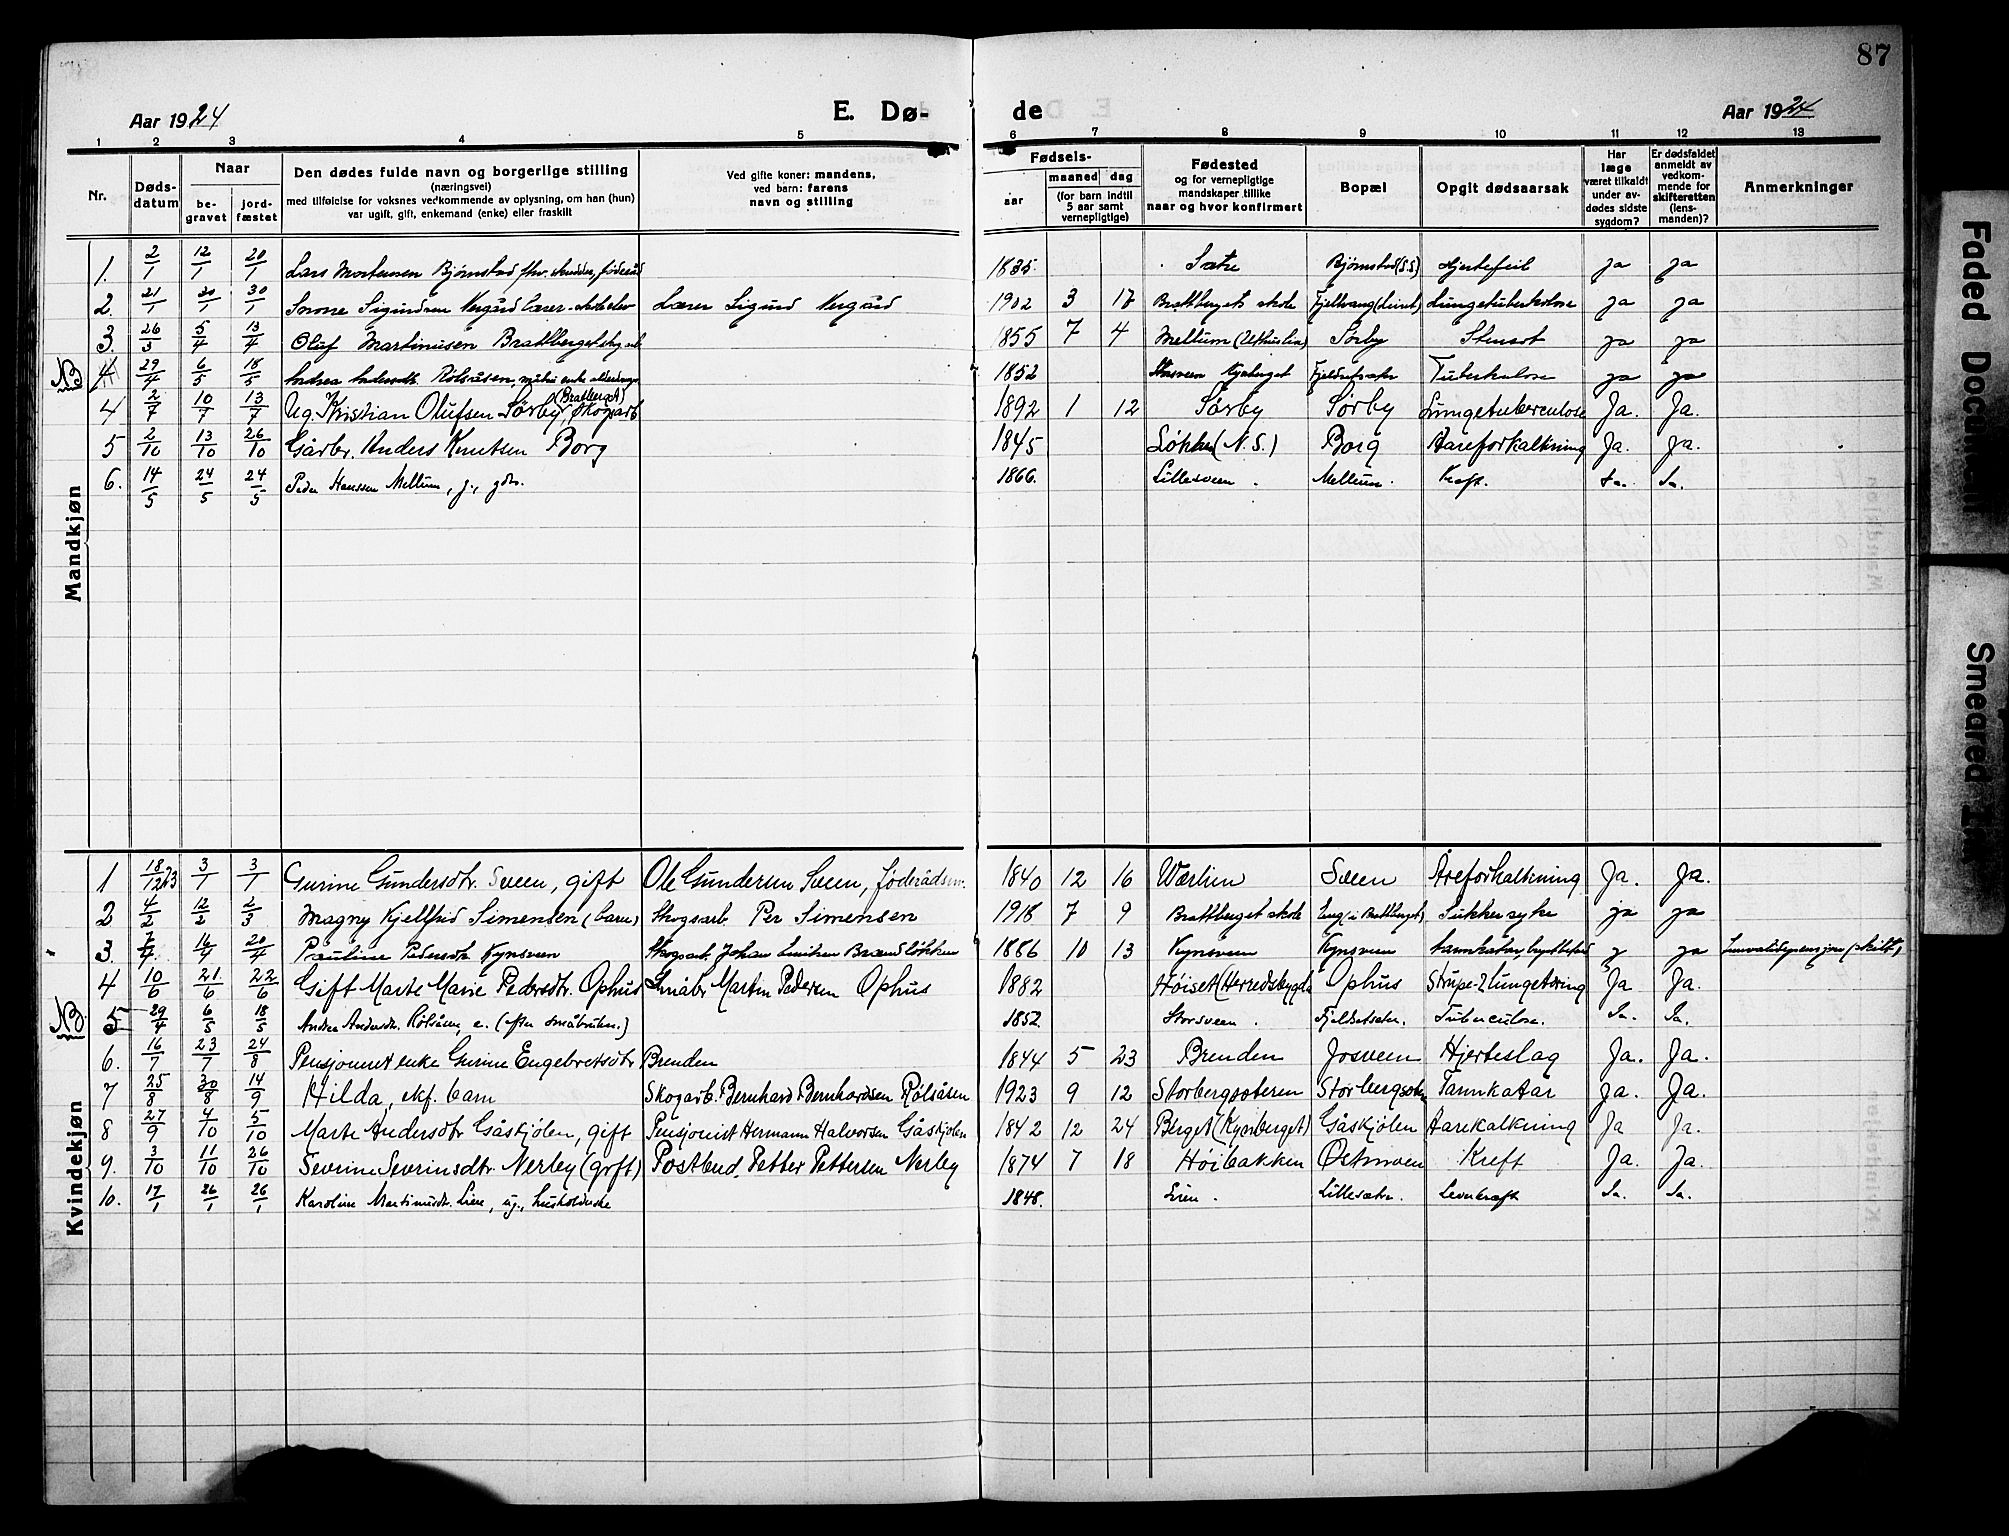 87
Aar 1924 E. Dø- de Aar 1924
1 2 3 4 5 6 7 8 9 10 11 12 13
Nr. Døds-datum Naar be-gravet jord-fæstet Den dødes fulde navn og borgerlige stilling (næringsvei) med tilføielse for voksnes vedkommende av oplysning, om han (hun) var ugift, gift, enkemand (enke) eller fraskilt Ved gifte koner: mandens, ved barn: farens navn og stilling Fødsels- aar maaned dag (for barn indtil 5 aar samt vernepligtige) Fødested og for vernepligtige mandskaper tillike naar og hvor konfirmert Bopæl Opgit dødsaarsak Har læge været tilkaldt under av-dødes sidste sygdom? Er dødsfaldet anmeldt av vedkom-mende for skifteretten (lens-manden)? Anmerkninger
Mandkjøn
1. 2/1 12/1 20/1 Lars Mortensen Bjørnstad 1835 Sætre Bjørnstad (S.S) Hjertefeil ja ja
2. 21/1 30/1 30/1 Sigurdsen Lærer Sigurd 1902 3 17 Brattberget skole Lungetuberkulose ja ja
3. 26/3 5/4 13/4 Oluf Martinusen Brattberget 1855 7 4 Mellum Sørby ja ja
NB 4 29/4 6/5 18/5 Andrea Andersdtr. Rølsåsen, 1852 Storsveen Kynberget Fjeldsetsæter Tuberkulose ja ja
4 2/7 10/7 13/7 Ug. Kristian Olufsen Sørby (Brattberget), skogsarb 1892 1 12 Sørby Sørby Lungetuberculose Ja. Ja.
5 2/10 13/10 26/10 Gårbr. Anders Knutsen Borg 1845 Løkken (N.S.) Borg Aareforkalkning Ja. Ja.
6. 14/5 24/5 24/5 Peder Hanssen Mellum, g., gdbr. 1866. Lillesveen. Mellum. Kræft. Ja. Ja.
Kvindekjøn
1 18/12 23 3/1 3/1 Gurine Gundersdtr. Sveen, gift Ole Gundersen Sveen, føderådsm. 1840 12 16 Wærlien Sveen Åreforkalkning Ja. Ja.
2 4/2 12/2 2/3 Magny Kjellfrid Simensen (barn) Skogsarb. Per Simensen 1918 7 9 Brattberget skole Eng (i Brattberget) Sukkersyke ja ja
3. 7/4 16/4 20/4 Pauline Pedersdtr. Kynsveen Skogsarb. Johan 1886 10 13 Kynsveen Kynsveen ja
4 10/6 21/6 22/6 Gift Marte Marie Pedersdtr. Ophus Småbr Martin Pedersen Ophus 1882 Høiset (Herredsbygda Ophus Strupe- & lungetæring Ja Ja.
NB. 5 29/4 6/5 18/5 Andrea Andersdtr. Rølsåsen, e. (efter småbruker.) 1852. Storsveen. Fjeldsetsætr. Tuberculose. Ja. Ja.
6. 16/7 23/7 24/8 Pensjonert enke Gurine Engebretsdtr Brenden 1844 5 23 Brenden Josveen Hjerteslag Ja. Ja.
7 25/8 30/8 14/9 Hilda, ekf. barn Skogarb. Bernhard Bernhardsen Rølsåsen 1923 9 12 Storbergsæteren Storbergsæteren Tarmkatar Ja. Ja.
8 27/9 4/10 5/10 Marte Andersdtr Gåskjølen, gift Pensjonist Hermann Halvorsen Gåskjølen 1842 12 24 Berget (Kynberget) Gåskjølen Aarekalkning Ja Ja.
9. 3/10 11/10 26/10 Severine Severinsdtr. Nerby (gift) Postbud Petter Pettersen Nerby 1874 7 18 Høibakken Østmoen Kreft Ja. Ja.
10. 17/1 26/1 26/1 Karoline Martinusdtr. Lien, ug., husholderske 1848. Lien. Lillesætr. Leverkræft Ja. Ja.
Faded Document
Smeared Ink